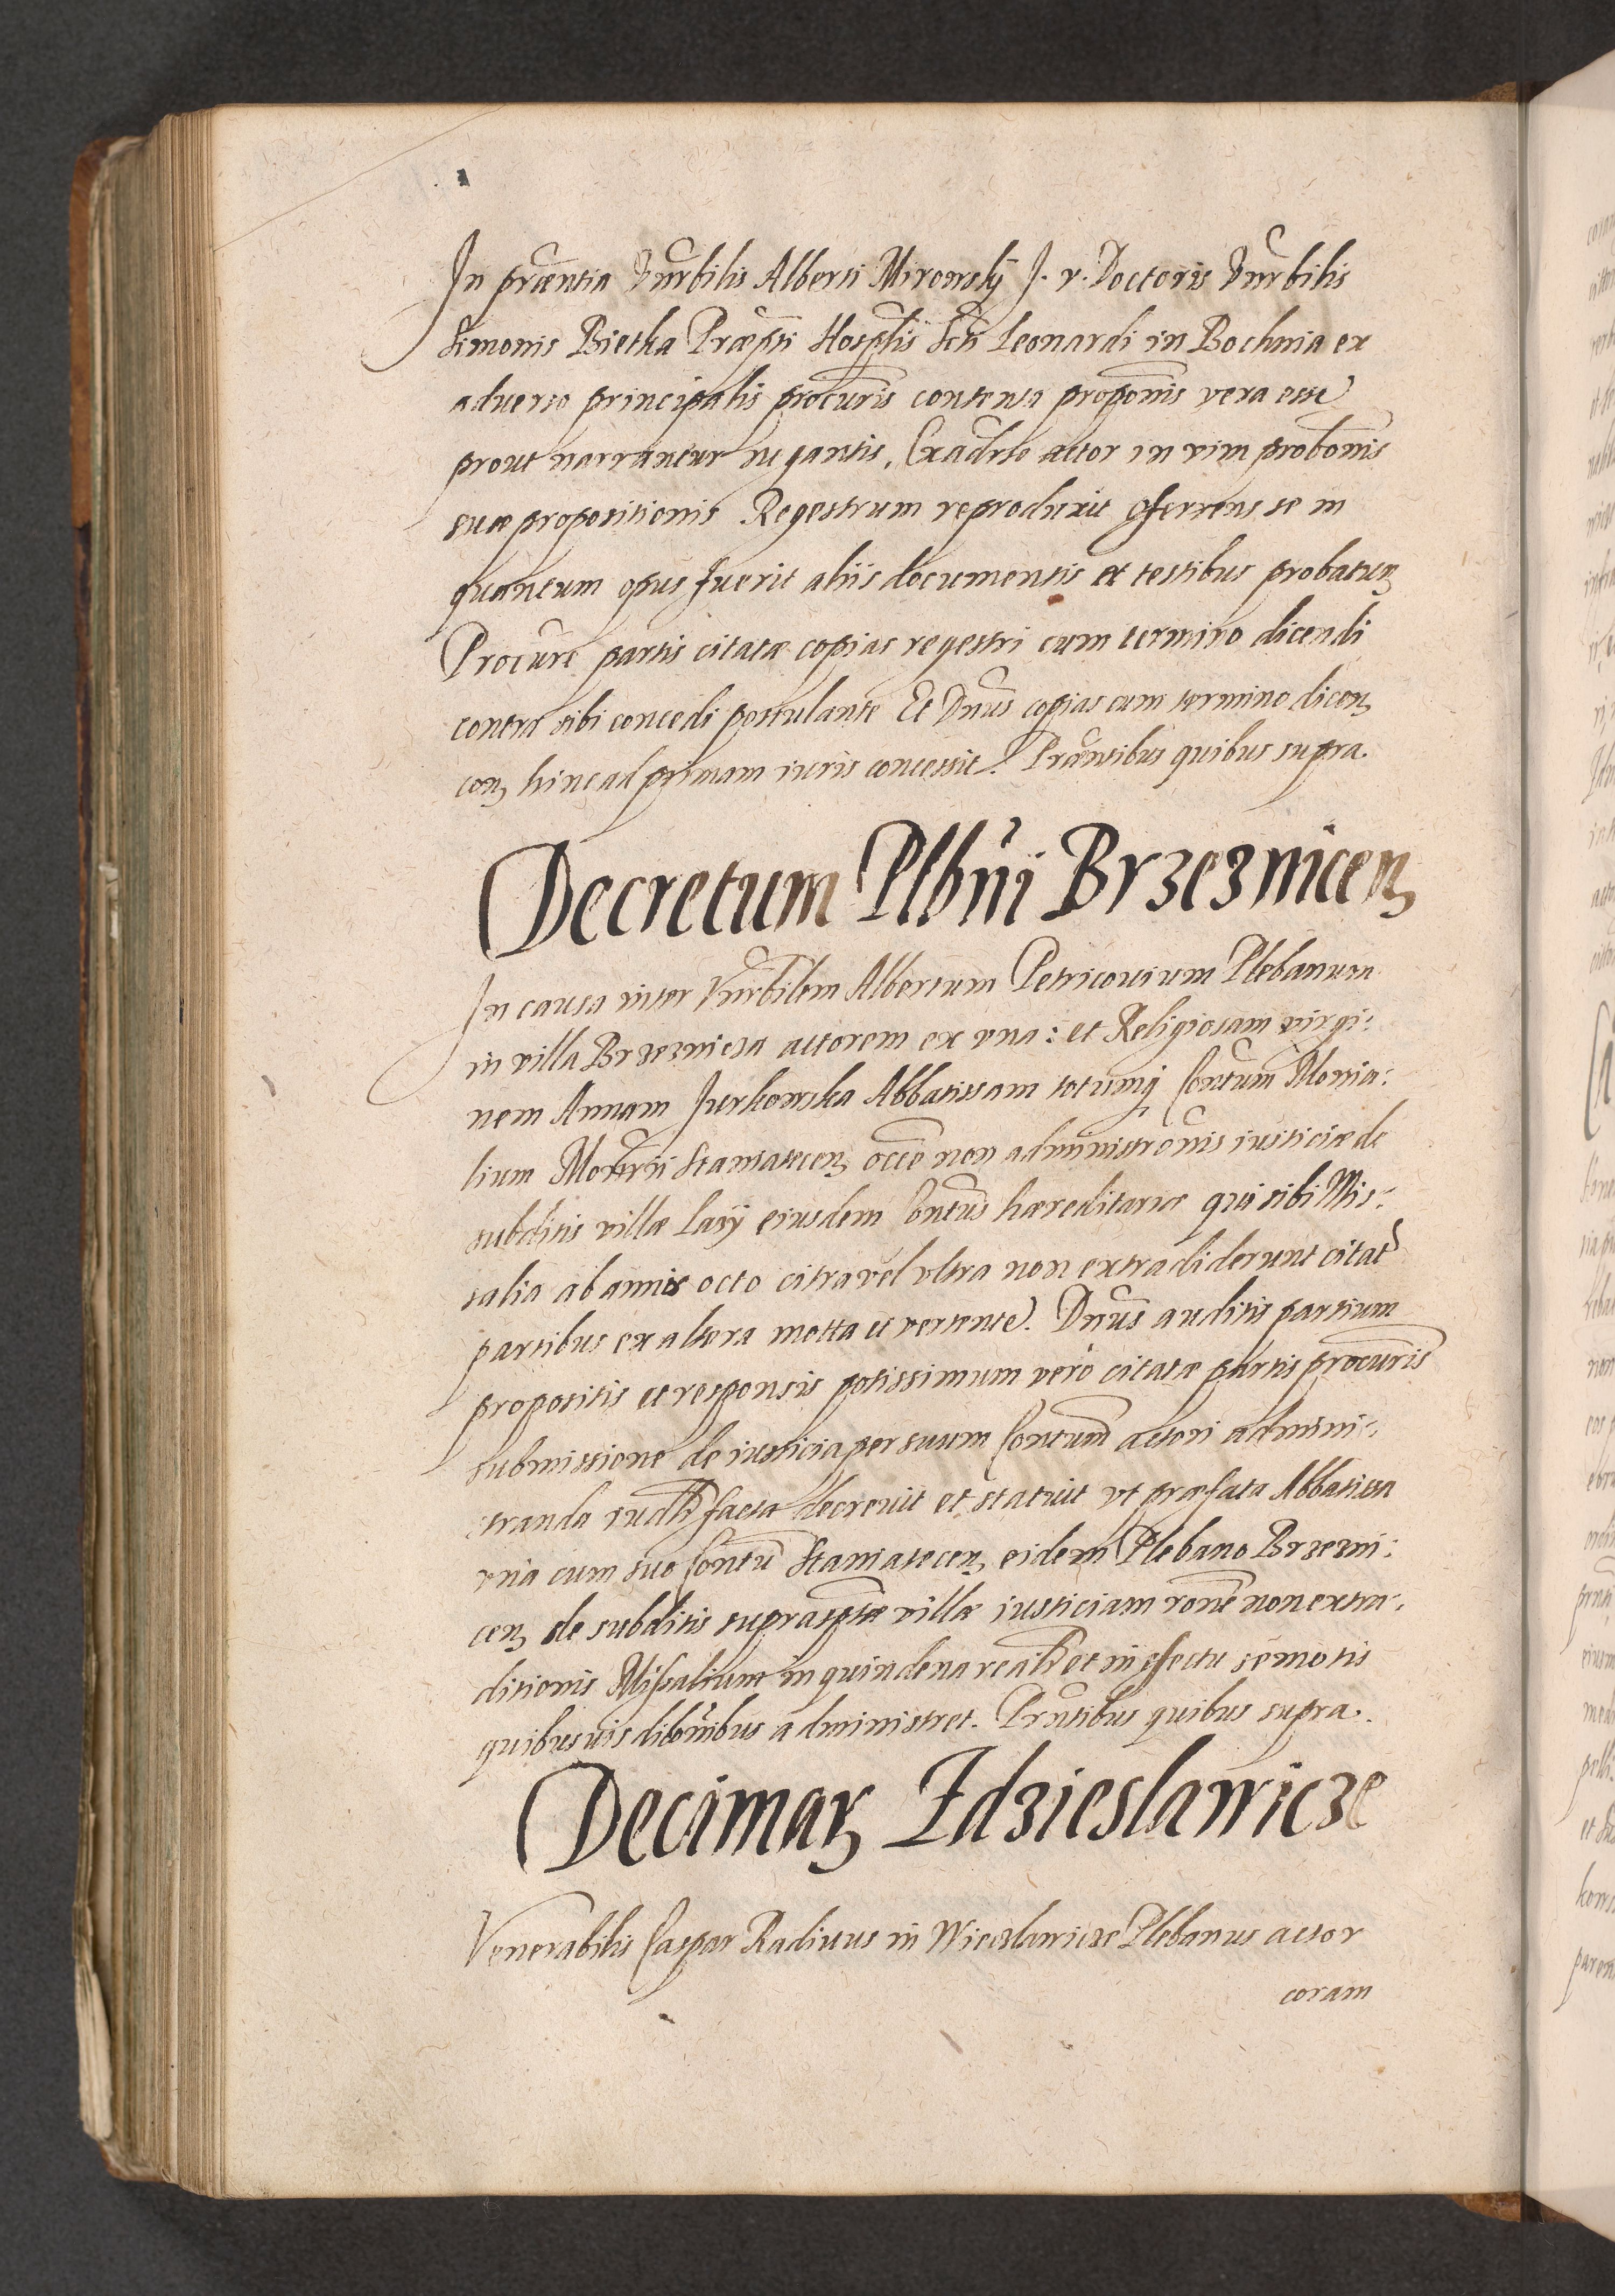 In præntia Vnrbilis Alberti Mironsky J. v. Doctoris Vnrbilis
Simonis Bietka Præpti Hosplis Scti Leonardi in Bochnia ex
aduerso principalis procuris contenta propōnis vera esse
prout narrantur negantis. Exadrso actor in vim probōnis
suæ propositionis Regestrum reproduxit offerrens se in
quantum opus fuerit aliis documentis et testibus probatuꝝ
Procure partis citatæ copias regestri cum termino dicendi
contra sibi concedi postulante Et Dnus copias cum termino dicenꝫ
conꝫ hinc ad primam iuris concessit. Præntibus quibus supra.
Decretum Plbni Brzeznicenꝫ
In causa inter Vnrbilem Albertum Petricouium Plebanum
in villa Brzeznicza actorem ex vna: et Religiosam virgi:
nem Annam Jurkowska Abbatissam totumq Conuentum Monia:
lium Monrii Staniatecenꝫ occōe non administrōnis iusticiæ de
subditis villæ Lasy eiusdem Conuentus hæreditariæ qui sibi Mis:
salia ab annis octo citra vel vltra non extradiderunt citat
partibus ex altera motta et vertente. Dnus auditis partium
propositis et responsis potissimum vero citatæ partis procuris
submissione de iusticia per suum Conuentum actori admini:
stranda iudlr facta decreuit et statuit vt præfata Abbatissa
vna cum suo Conuentu Staniatecenꝫ eidem Plebano Brzezni:
cenꝫ de subditis suprascptæ villæ iusticiam rone non extra:
ditionis Missalium in quindena realr et in effectu semotis
quibusuis dilōnibus administret. Prntibus quibus supra.
Decimaꝝ Zdzieslawicze
Venerabilis Caspar Radiuus in Wieczlawicze Plebanus actor
coram